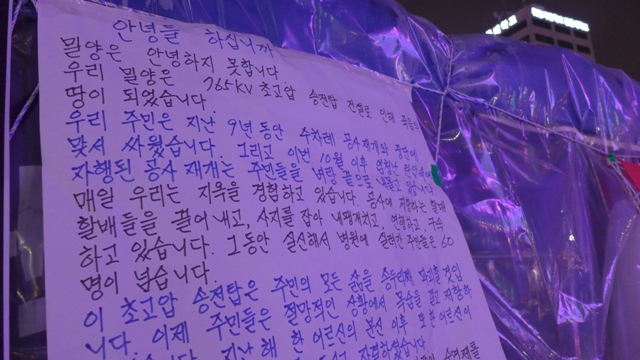 안녕들 하십니까
밀양은 안녕하지 못합니다.
우리 밀양은 765kV 초고압 송전탑 건설로 인해 죽음의
땅이 되었습니다.
우리 주민은 지난 9년 동안 수차례 공사 재개와 중단에
맞서 싸웠습니다. 그리고 이번 10월 이후 엄청난
자행된 공사 재개는 주민들을 벼랑 끝으로 내몰고 있습니다
매일 우리는 지옥을 경험하고 있습니다. 공사에 저항하는 할매
할배들을 끌어내고, 사지를 잡아 내팽개치고, 연행하고, 구속
하고 있습니다. 그동안 실신해서 병원에 실려간 주민들은 60
명이 넘습니다.
이 초고압 송전탑은 주민의 모든 삶을 송두리째 파괴할 것입
니다. 이제 주민들은 절망적인 상황에서 목숨을 걸고 저항하
니다. 지난 해 한 어르신의 분신 이후 또 한 어르신이